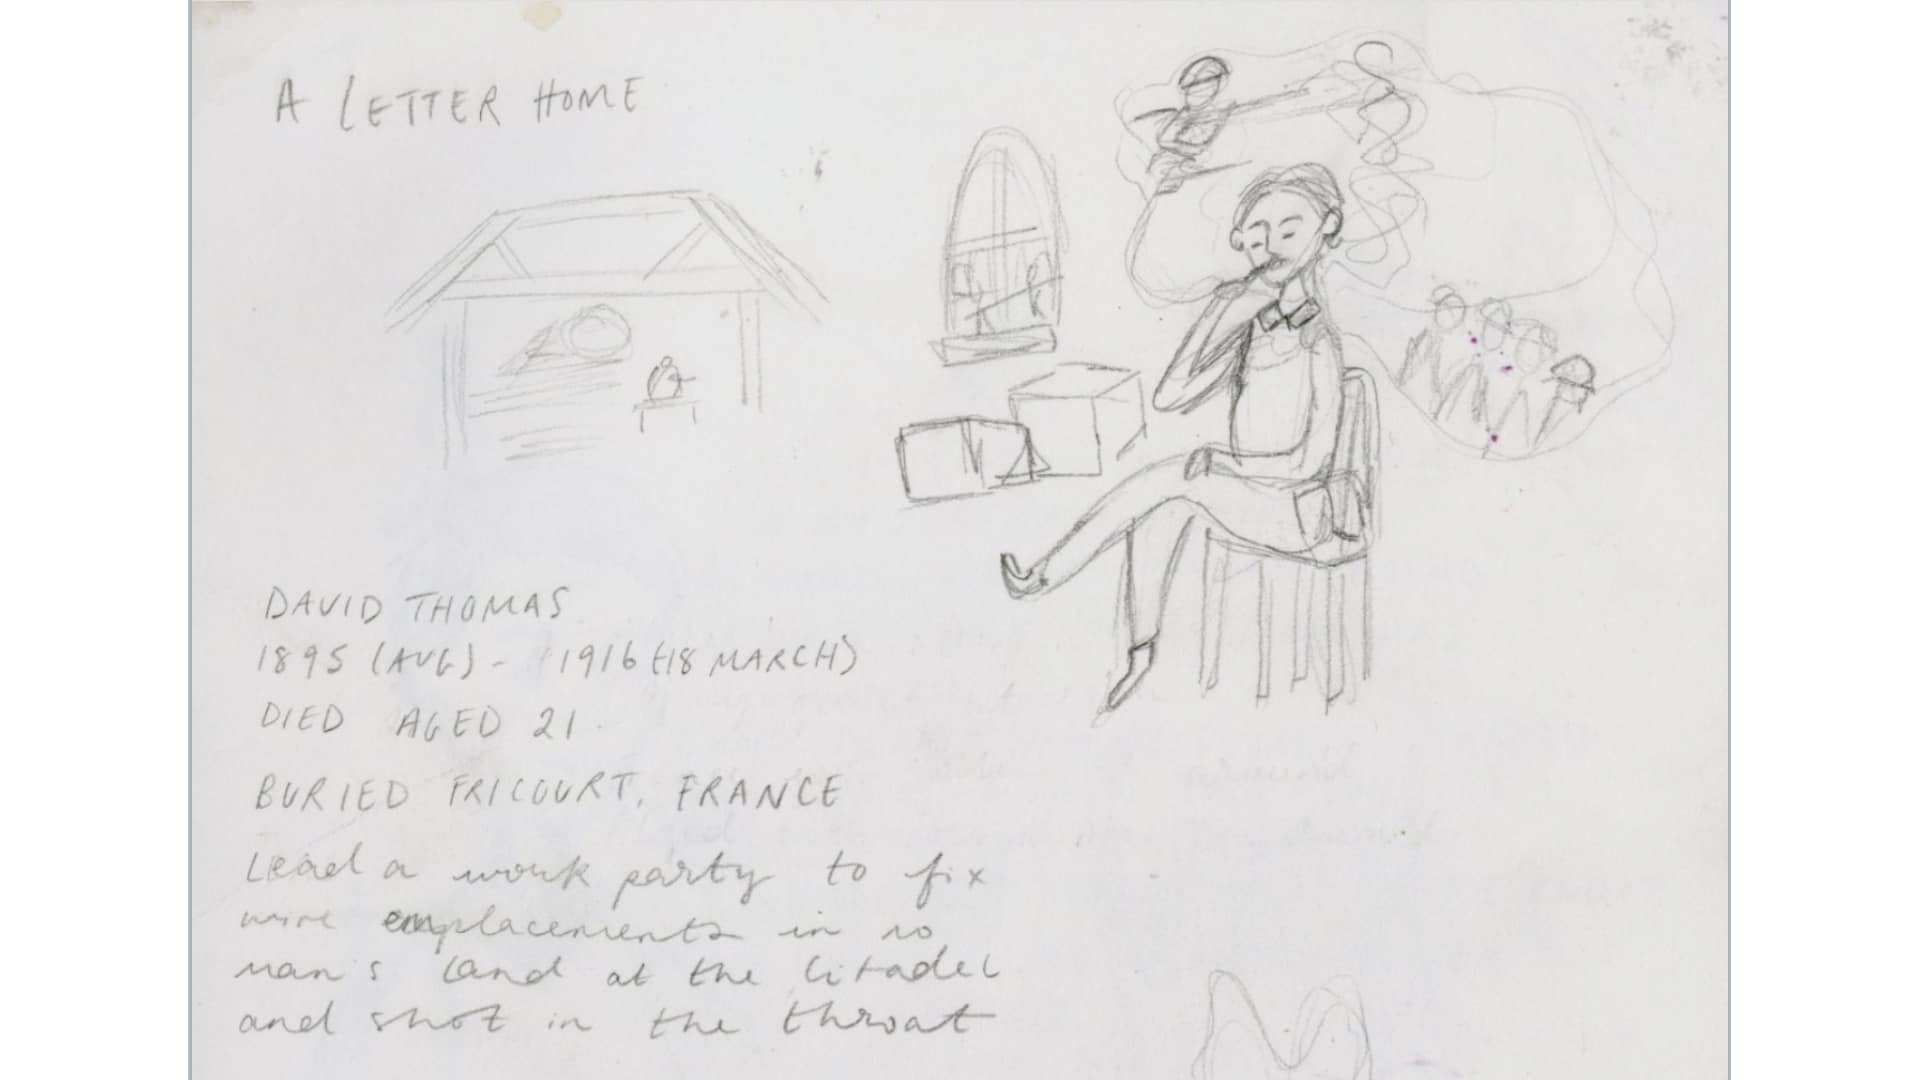 A LETTER HOME
DAVID THOMAS
1895 (AUG) - 1916 (18 MARCH)
DIED AGED 21
BURIED FRICOURT, FRANCE
Lead a work party to fix
wire emplacements in no
man's land at the Citadel
and shot in the throat